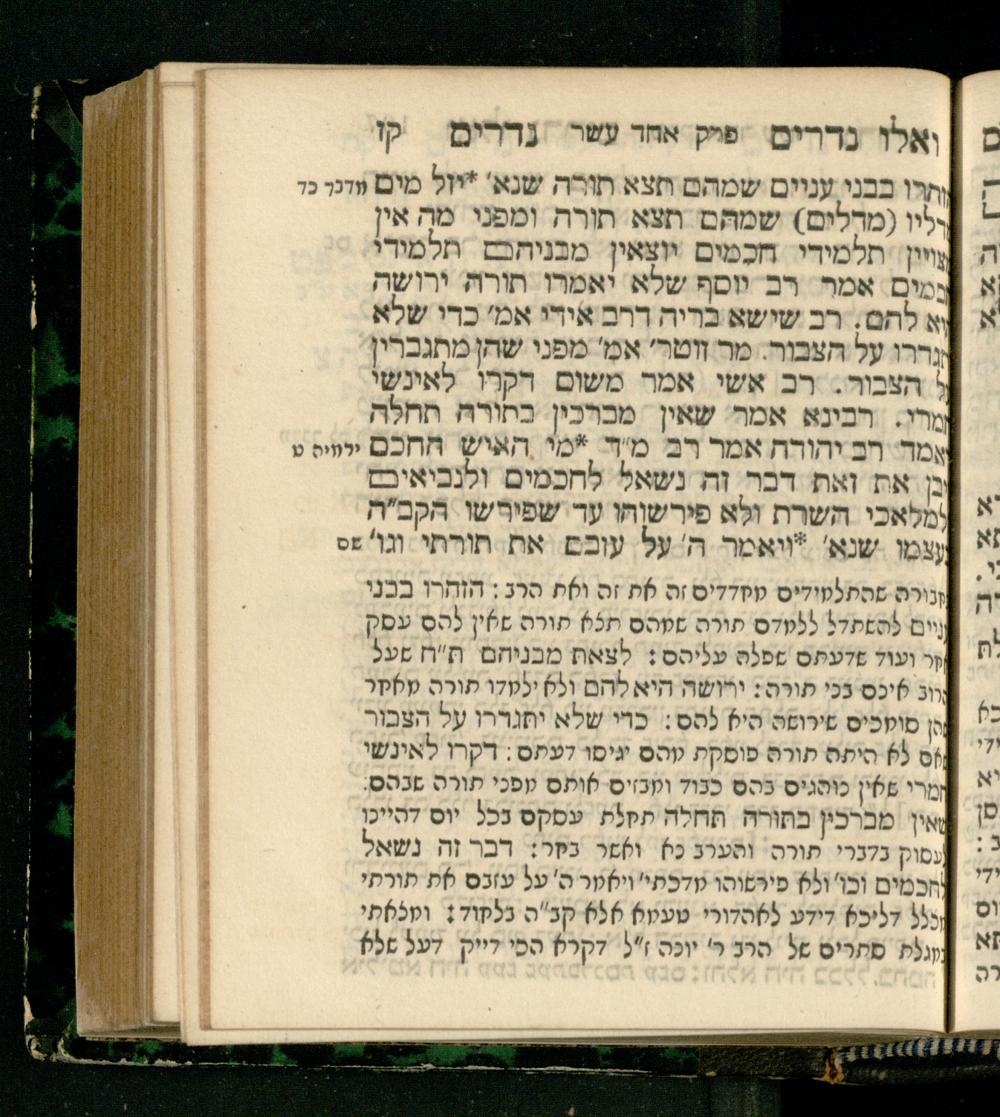 ואלו נדרים פרק אחד עשר נדרים קז
הזהרו בבני עניים שמהם תצא תורה שנא' *יזל מים מדבר כד
מדליו (מדלים) שמהם תצא תורה ומפני מה אין
מצויין תלמידי חכמים יוצאין מבניהם תלמידי
חכמים אמר רב יוסף שלא יאמרו תורה ירושה
היא להם. רב שישא בריה דרב אידי אמ' כדי שלא
יתגדרו על הצבור. מר זוטר' אמ' מפני שהן מתגברין
על הצבור. רב אשי אמר משום דקרו לאינשי
חמרי. רבינא אמר שאין מברכין בתורה תחלה
דאמר רב יהודה אמר רב מ"ד *מי האיש החכם ירמיה ט
ויבן את זאת דבר זה נשאל לחכמים ולנביאים
ולמלאכי השרת ולא פירשוהו עד שפירשו הקב"ה
בעצמו שנא' *ויאמר ה' על עזבם את תורתי וגו' שם
בחבורה שהתלמידים מחדדים זה את זה ואת הרב: הזהרו בבני
עניים להשתדל ללמדם תורה שמהם תצא תורה שאין להם עסק
אחר ועוד שדעתם שפלה עליהם: לצאת מבניהם ת"ח שעל
הרוב אינם בני תורה: ירושה היא להם ולא ילמדו תורה מאחר
שהן סומכים שירושה היא להם: כדי שלא יתגדרו על הצבור
שאם לא היתה תורה פוסקת מהם יגיסו דעתם: דקרו לאינשי
חמרי שאין נוהגים בהם כבוד ומבזים אותם מפני תורה שבהם:
שאין מברכין בתורה תחלה תחלת עסקם בכל יום דהיינו
לעסוק בדברי תורה והערב נא ואשר בחר: דבר זה נשאל
לחכמים וכו' ולא פירשוהו מדכתי' ויאמר ה' על עזבם את תורתי
מכלל דליכא דידע לאהדורי טעמא אלא קב"ה בלחוד: ומצאתי
במגלת סתרים של הרב ר' יונה ז"ל דקרא הכי דייק דעל שלא